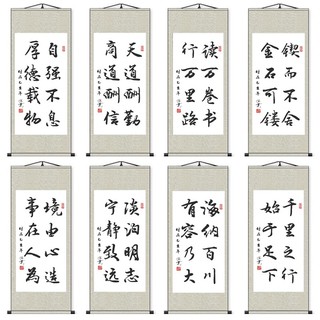 自强不息
厚德载物
天道酬勤
商道酬信
读万卷书
行万里路
锲而不舍
金石可镂
境由心造
事在人为
淡泊明志
宁静致远
海纳百川
有容乃大
千里之行
始于足下